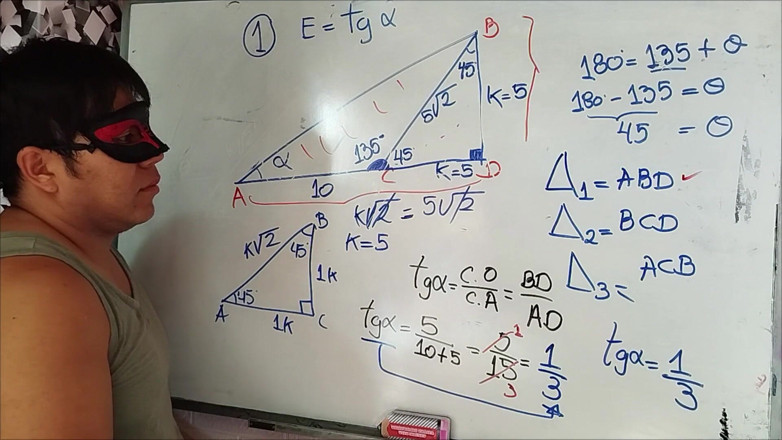 ① E = tg α
B
45
5√2
K=5
α
135°
45
K=5
A
10
C
D
K√2 = 5√2
K=5
B
K√2
45
1K
45
A
1K
C
180° = 135 + θ
180° - 135 = θ
45 = θ
Δ₁ = ABD ✓
Δ₂ = BCD
Δ₃ = ACB
tgα = C.O/C.A = BD/AD
tgα = 5/(10+5) = 5/15 = 1/3
1
3
tgα = 1/3